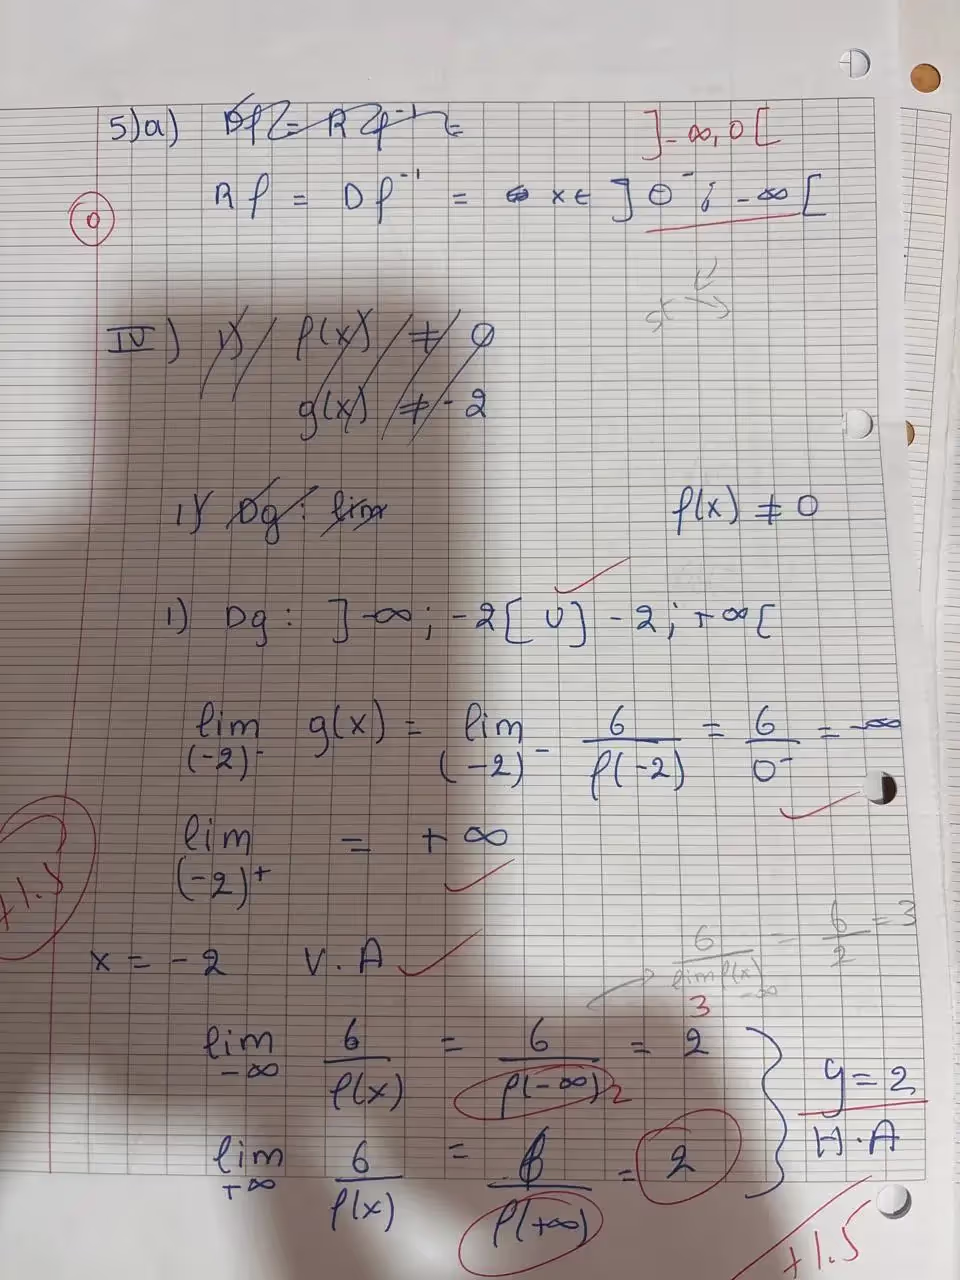 5)a) Df = R f⁻¹ =
]-∞, 0[
Rf = Df⁻¹ = x ∈ ]0⁻; -∞[
0
IV) 1) f(x) ≠ 0
g(x) ≠ -2
1) Dg: lim
f(x) ≠ 0
1) Dg: ]-∞; -2[ U ]-2; +∞[
lim (-2)⁻ g(x) = lim (-2)⁻ 6/f(-2) = 6/0⁻ = -∞
lim (-2)⁺ = +∞
+1.5
x = -2 V.A
6/lim f(x) -∞ = 6/2 = 3
3
lim -∞ 6/f(x) = 6/f(-∞) = 2
2
y = 2
H.A
lim +∞ 6/f(x) = 6/f(+∞) = 2
+1.5